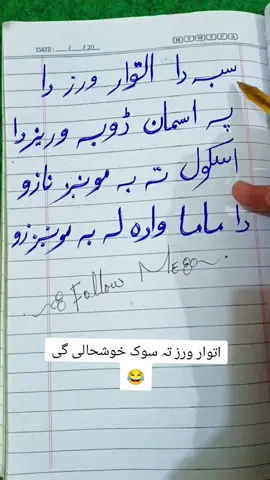 DATE: __/__/20__
M T W T F S
سبہ دا التوار ورز دا
پہ اسمان ڈوبہ وریزدا
اسکول تہ بہ مونږ نازو
دا ماما واده لہ بہ مونږ زو
Follow Me
اتوار ورز تہ سوک خوشحالی گی
😂